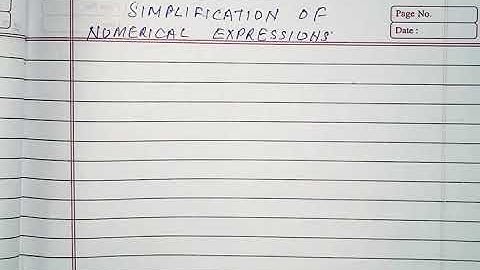 SIMPLIFICATION OF
NUMERICAL EXPRESSIONS
Page No.
Date :